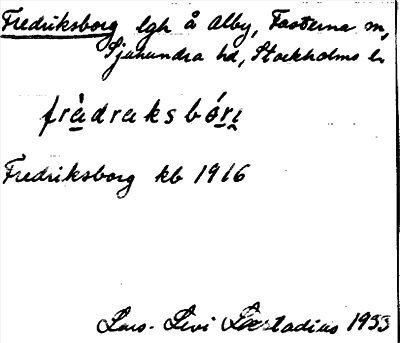 Fredriksborg lgh å Alby, Fasterna sn,
Sjuhundra hd, Stockholms l.
Fredriksborg kb 1916
Lars-Levi Læstadius 1933